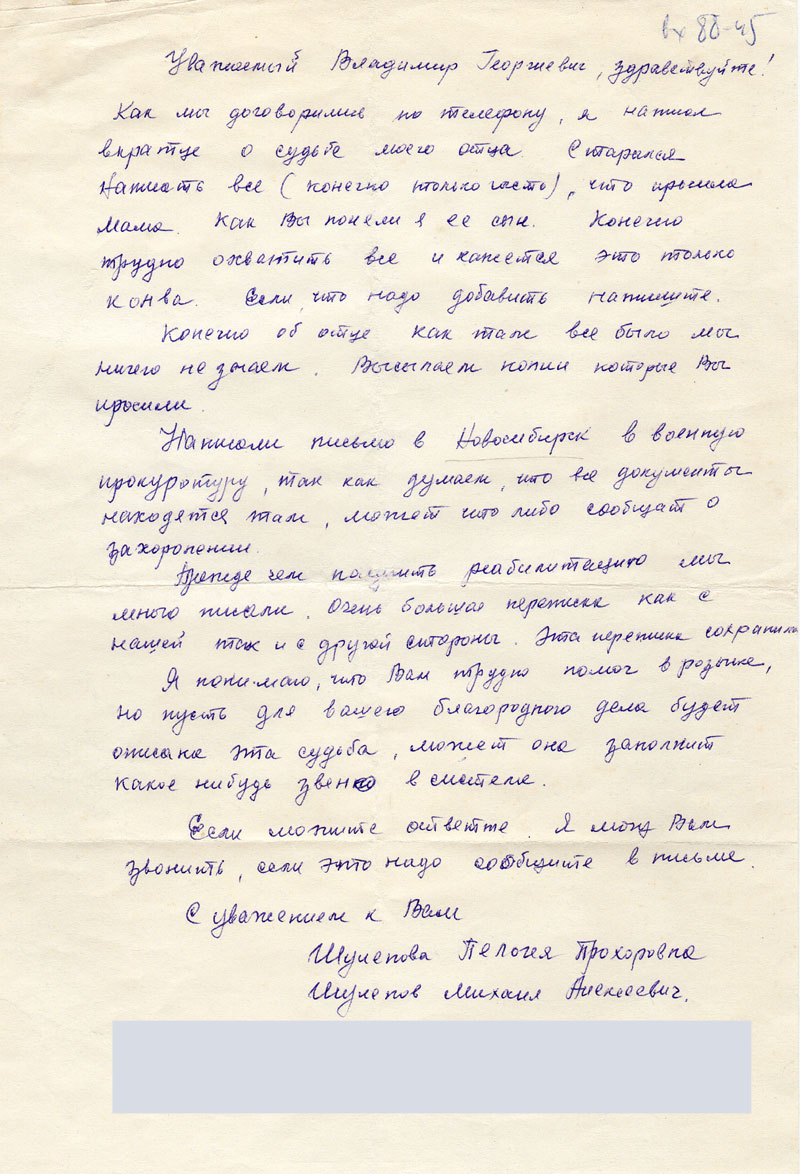 вх 88-45
Уважаемый Владимир Георгиевич, здравствуйте!
Как мы договорились по телефону, я написал
вкратце о судьбе моего отца. Старался
написать все (конечно только часть), что просила
мама. Как Вы понели я ее сын. Конечно
трудно охватить все и кажется это только
конва. Если что надо добавить напишите.
Конечно об отце как там все было мы
ничего не знаем. Высылаем копии которые Вы
просили.
Написали письмо в Новосибирск в военную
прокуратуру, так как думаем, что все документы
находятся там, может что либо сообщат о
захоронении.
Прежде чем получить реабилитацию мы
много писали. Очень большая переписка как с
нашей так и с другой стороны. Эта переписка сохранила
Я понимаю, что Вам трудно помоч в розыске,
но пусть для вашего благородного дела будет
описана эта судьба, может она заполнит
какое нибудь звено в системе.
Если можите ответте. Я могу Вам
звонить, если это надо сообщите в письме.
С уважением к Вам
Шулепова Пелогия Прохоровна
Шулепов Михаил Алексеевич.